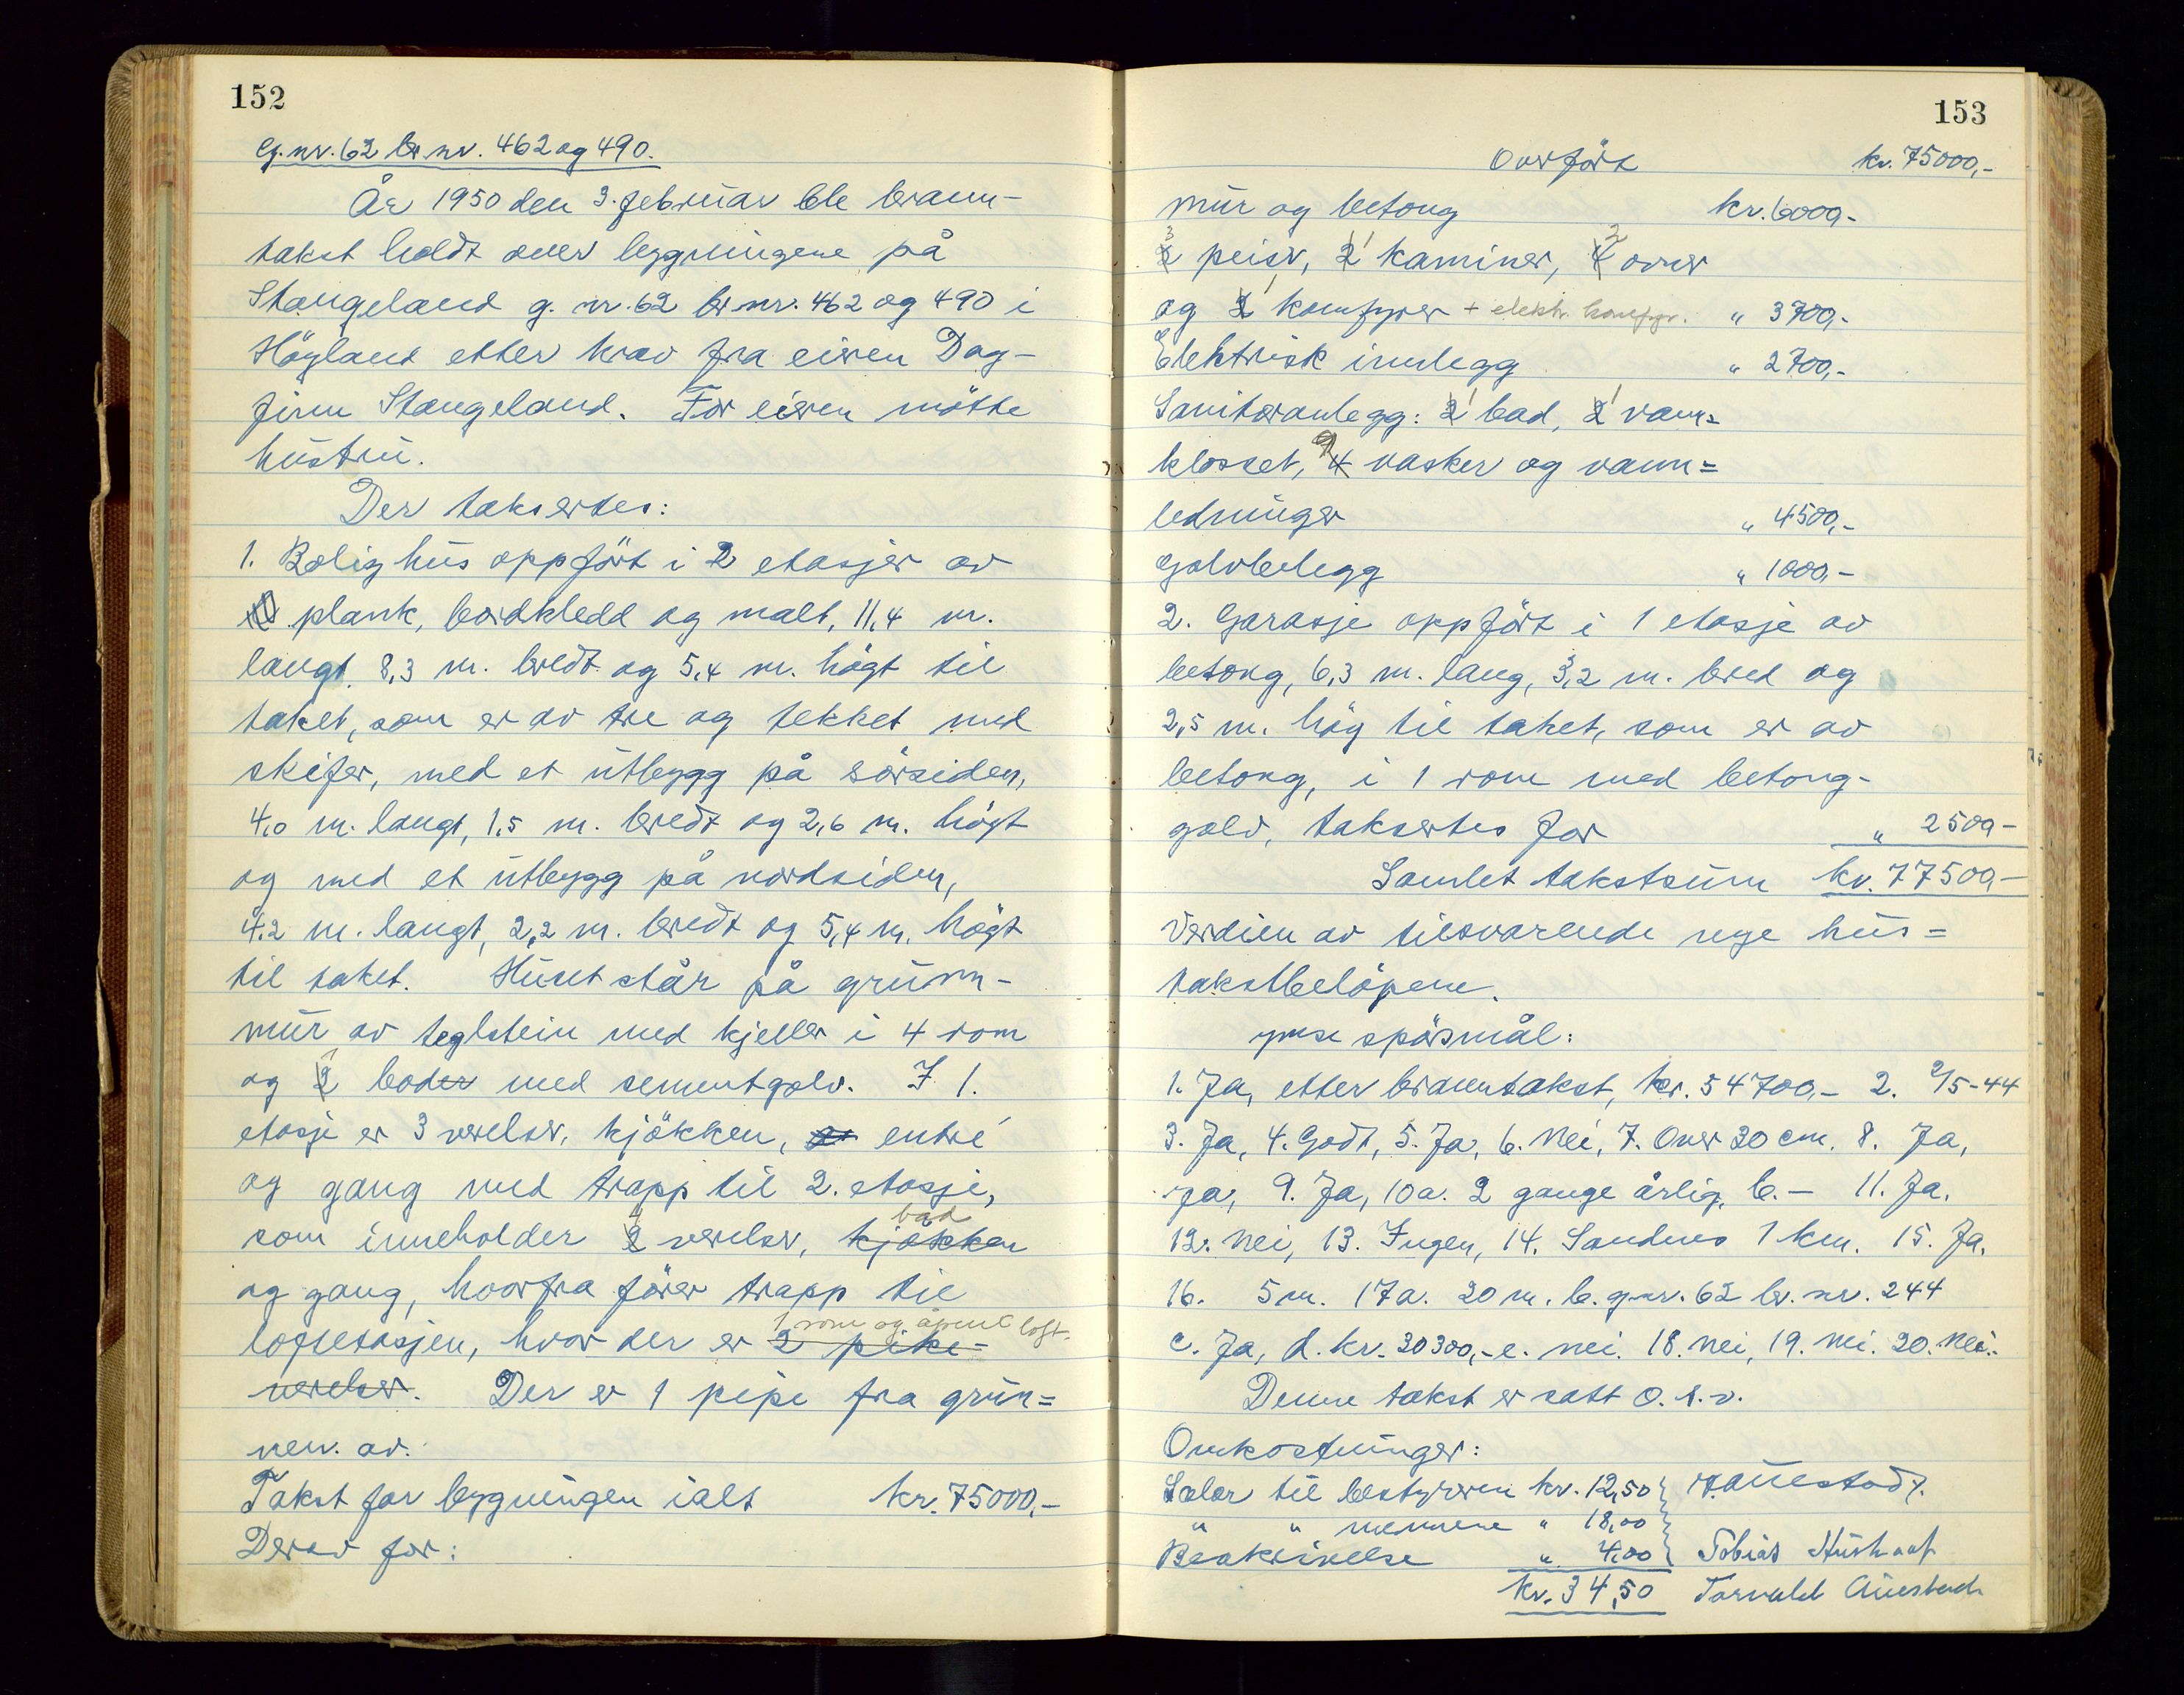 152
G.nr. 62 br.nr. 462 og 490.
År 1950 den 3. februar ble brann-
takst holdt over bygningene på
Stangeland g. nr. 62 br.nr. 462 og 490 i
Högland etter krav fra eieren Dag-
finn Stangeland. For eieren mötte
hustru.
Der taksertes:
1. Bolighus oppfört i 2 etasjer av
plank, bordkledd og malt, 11,4 m.
langt, 8,3 m. bredt og 5,4 m. högt til
taket, som er av tre og tekket med
skifer, med et utbygg på sörsiden,
4,0 m. langt, 1,5 m. bredt og 2,6 m. högt
og med et utbygg på nordsiden,
4,2 m. langt, 2,2 m. bredt og 5,4 m. högt
til taket. Huset står på grunn-
mur av teglstein med kjeller i 4 rom
og 2 1 boder med sementgolv. I 1.
etasje er 3 værelser, kjökken, entré
og gang med trapp til 2. etasje,
som inneholder 2 4 værelser, kjökken bad
og gang, hvorfra förer trapp til
loftsetasjen, hvor der er 2 pike- 1 rom og åpent loft.
værelser. Der er 1 pipe fra grun=
nen. av.
Takst for bygningen ialt kr. 75000,-
Derav for:
153
Overfört kr. 75000,-
mur og betong kr. 6000,-
2 3 peiser, 2 1 kaminer, 4 2 ovner
og 2 1 komfyrer + elektr. komfyr. " 3700,-
Elektrisk innlegg " 2700,-
Sanitæranlegg: 2 1 bad, 2 1 vann=
klosset, 4 9 vasker og vann=
ledninger " 4500,-
Golvbelegg " 1000,-
2. Garasje oppfört i 1 etasje av
betong, 6,3 m. lang, 3,2 m. bred og
2,5 m. hög til taket, som er av
betong, i 1 rom med betong-
golv, taksertes for " 2500,-
Samlet takstsum kr. 77500,-
Verdien av tilsvarende nye hus=
takstbelöpene.
Ymse spörsmål:
1. Ja, etter branntakst, kr. 54700,- 2. 2/5-44
3. Ja, 4. Godt, 5. Ja, 6. Nei, 7. Over 20 cm. 8. Ja,
Ja, 9. Ja, 10a. 2 gange årlig, b. - 11. Ja.
12. Nei, 13. Ingen, 14. Sandnes 1 km. 15. Ja.
16. 5 m. 17a. 20 m. b. g.nr. 62 br. nr. 244
c. Ja, d. kr. 20300,- e. nei. 18. Nei, 19. Nei. 20. Nei.
Denne takst er satt o. s. v.
Omkostninger:
Salær til bestyreren kr. 12,50
" " mennene " 18,00
Beskrivelse " 4,00 Tobias
kr. 34,50 Torvald